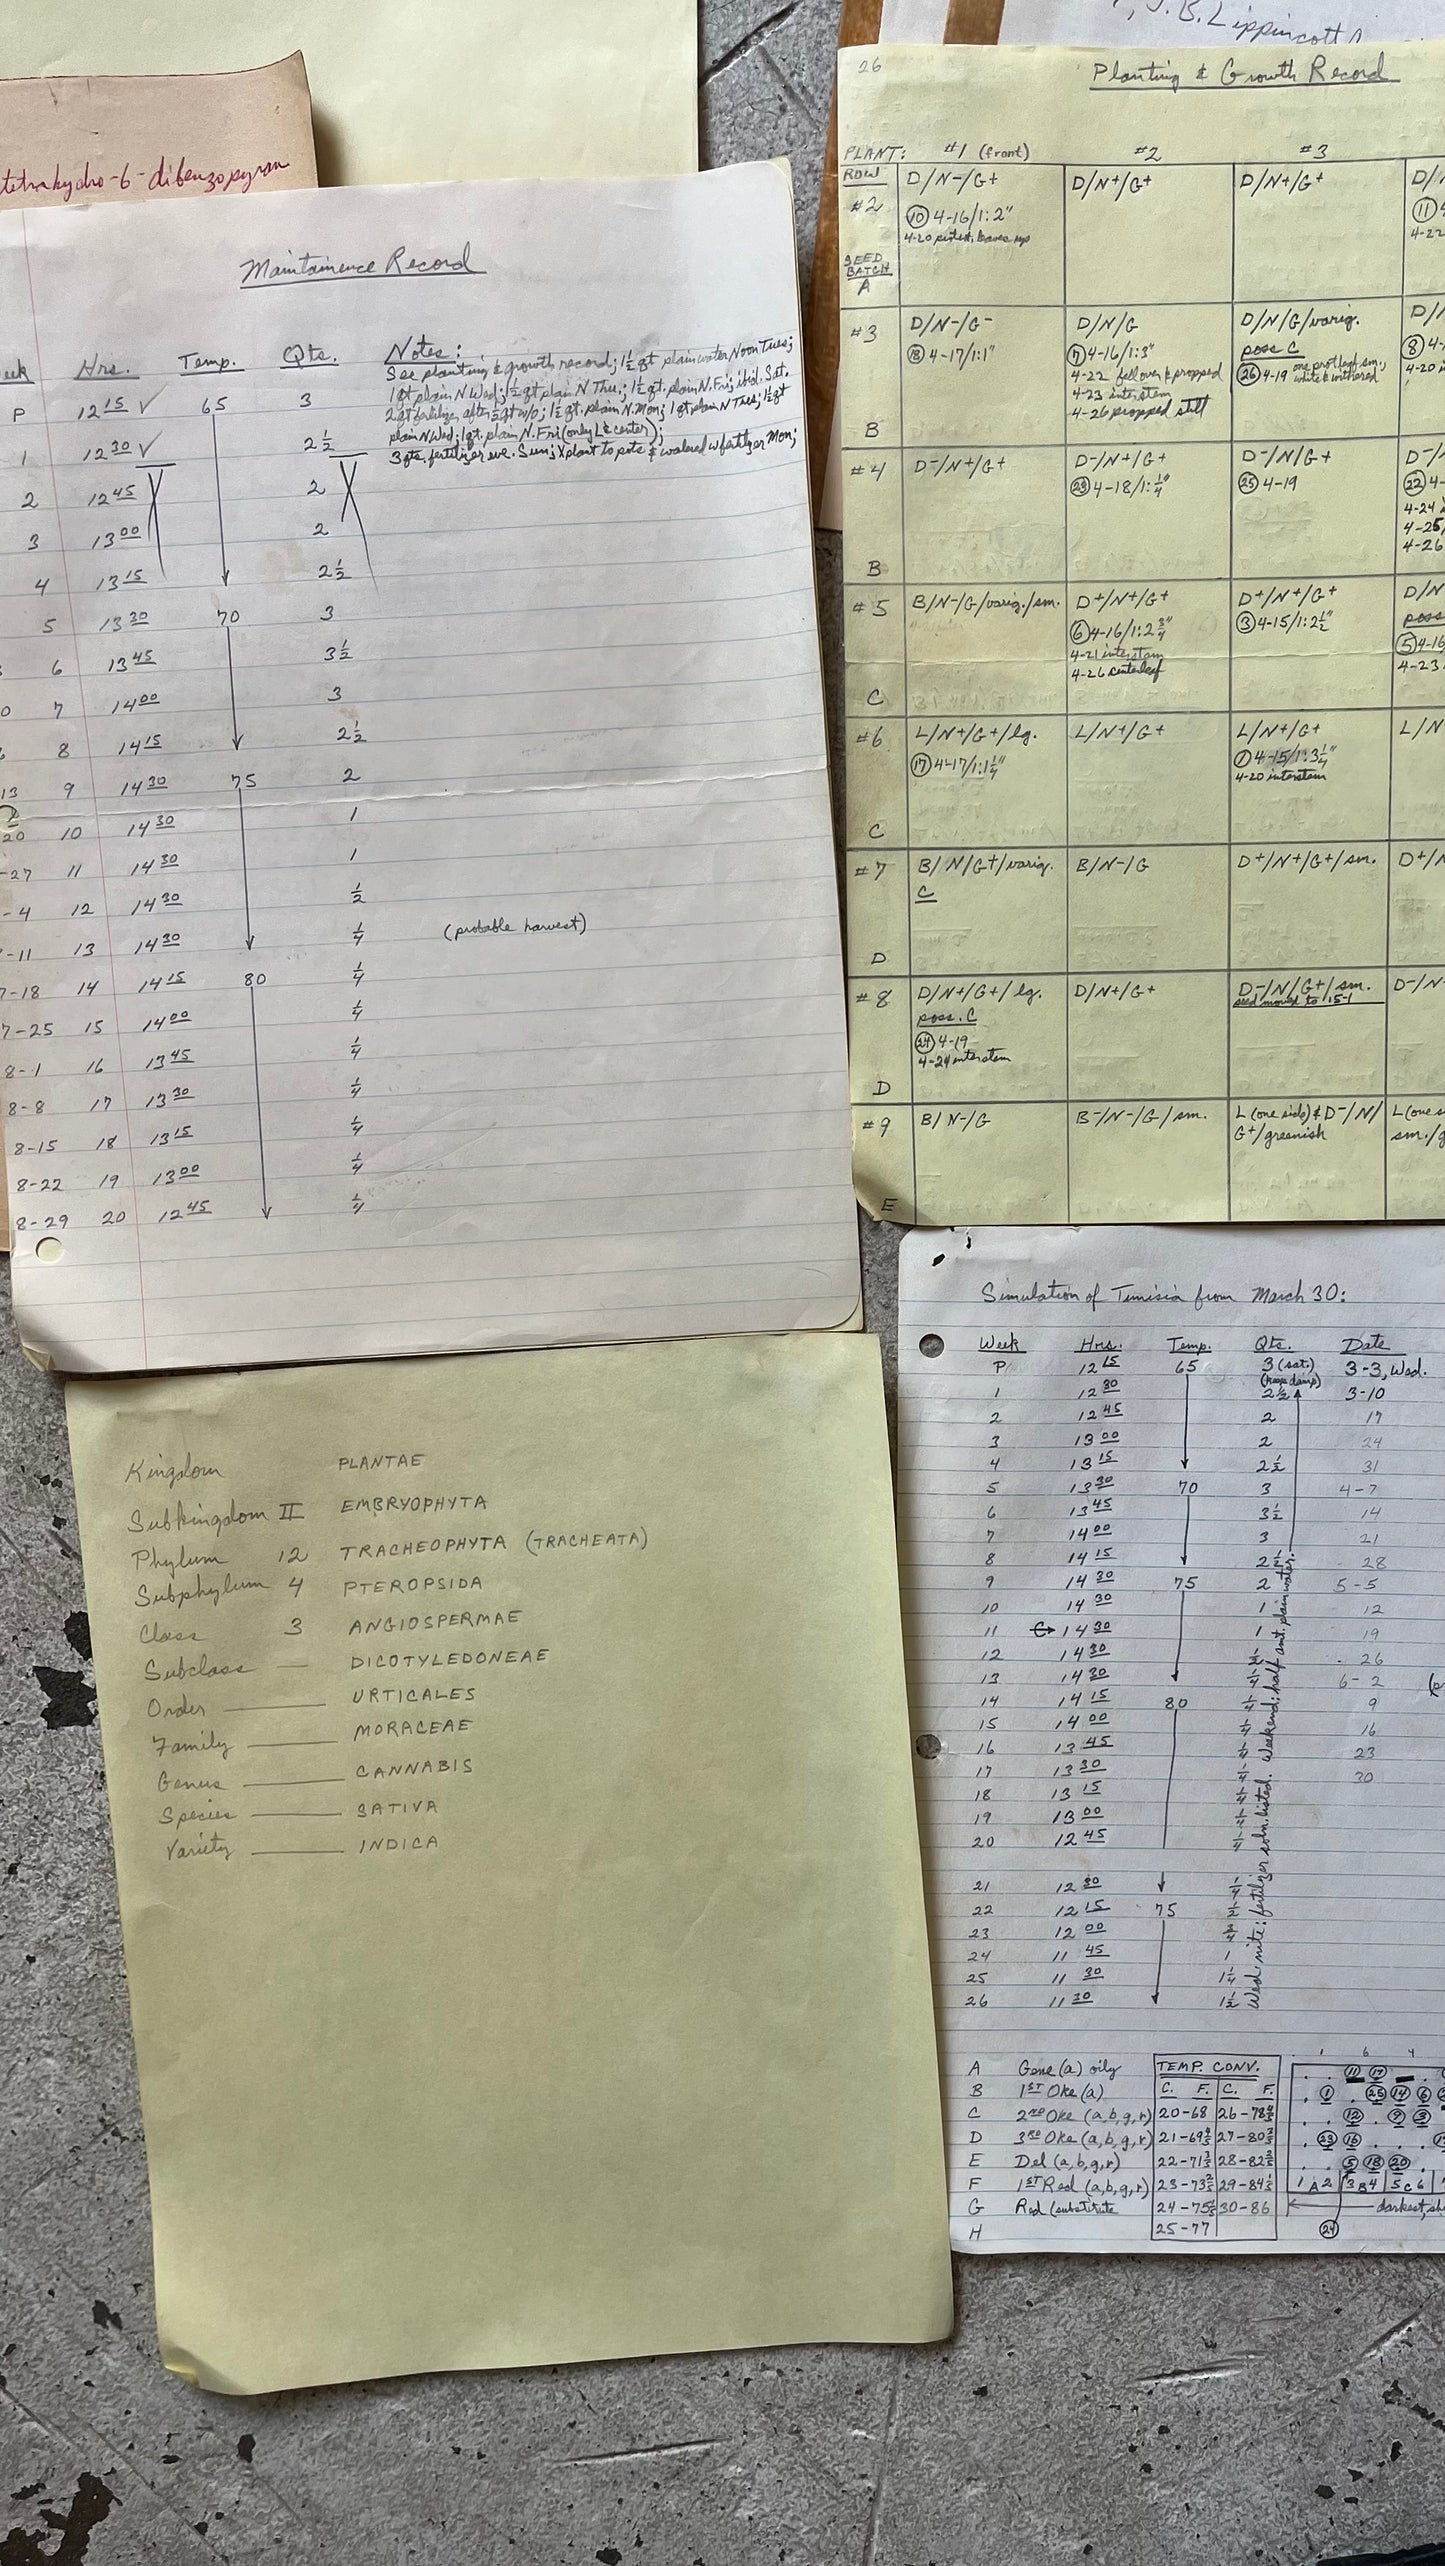 , J.B. Lippincott
tetrahydro-6-dibenzopyran
Maintainence Record
eek Hrs. Temp. Qts. Notes:
See planting & growth record; 1½ qt plain water Noon Tues;
1 qt plain N Wed; 1½ qt plain N Thu.; 1½ qt. plain N. Fri; ibid. Sat.
2 qt fertilizer after ½ qt w/o; 1½ qt. plain N. Mon; 1 qt plain N Tues; 1½ qt
plain N Wed; 1 qt. plain N. Fri (only L & center);
3 qts. fertilizer eve. Sun; Xplant to pots & watered w fertlzer Mon;
P 12 15 ✓ 65 3
1 12 30 ✓ 2½
2 12 45 2
3 13 00 2
4 13 15 2½
5 13 30 70 3
6 13 45 3½
0 7 14 00 3
8 14 15 2½
13 9 14 30 75 2
20 10 14 30 1
-27 11 14 30 1
-4 12 14 30 ½
-11 13 14 30 ¼ (probable harvest)
7-18 14 14 15 80 ¼
7-25 15 14 00 ¼
8-1 16 13 45 ¼
8-8 17 13 30 ¼
8-15 18 13 15 ¼
8-22 19 13 00 ¼
8-29 20 12 45 ¼
26 Planting & Growth Record
PLANT: #1 (front) #2 #3
ROW D/N-/G+ D/N+/G+ D/N+/G+ D/
#2 ⑩ 4-16/1:2" ⑪ 4
4-20 leaves up 4-22
SEED
BATCH
A
#3 D/N-/G- D/N/G D/N/G/varig. D/
⑱ 4-17/1:1" ⑦ 4-16/1:3" poss C ⑧ 4-
4-22 fell over & propped ㉖ 4-19 one prot leaf sm; 4-20 in
4-23 interstem white & withered
4-26 propped still
B
#4 D-/N+/G+ D-/N+/G+ D-/N/G+ D-/
㉓ 4-18/1:¼" ㉕ 4-19 ㉒ 4-
4-24
4-25
4-26
B
#5 B/N-/G/varig./sm. D+/N+/G+ D+/N+/G+ D/N
⑥ 4-16/1:2¾" ③ 4-15/1:2½" poss
4-21 interstem ⑤ 4-16
4-26 centerleaf 4-23
C
#6 L/N+/G+/lg. L/N+/G+ L/N+/G+ L/N
⑰ 4-17/1:1¼" ① 4-15/1:3¼"
4-20 interstem
C
#7 B/N/G+/varig. B/N-/G D+/N+/G+/sm. D+/N
C
D
#8 D/N+/G+/lg. D/N+/G+ D-/N/G+/sm. D-/N-
poss. C seed moved to 15-1
㉔ 4-19
4-24 interstem
D
#9 B/N-/G B-/N-/G/sm. L (one side) & D-/N/ L (one s
G+/greenish sm./g
E
Simulation of Tunisia from March 30:
Week Hrs. Temp. Qts. Date
P 12 15 65 3 (sat.) 3-3, Wed.
(keep damp)
1 12 30 2½ 3-10
2 12 45 2 17
3 13 00 2 24
4 13 15 2½ 31
5 13 30 70 3 4-7
6 13 45 3½ 14
7 14 00 3 21
8 14 15 2½ 28
9 14 30 75 2 5-5
10 14 30 1 12
11 14 30 1 19
12 14 30 ½ 26
13 14 30 ¼ 6-2
14 14 15 80 ¼ 9
15 14 00 ¼ 16
16 13 45 ¼ 23
17 13 30 ¼ 30
18 13 15 ¼
19 13 00 ¼
20 12 45 ¼
21 12 30 ¼
22 12 15 75 ½
23 12 00 ¾
24 11 45 1
25 11 30 1¼
26 11 30 1½
Wed. nite: fertilizer soln. listed. Weekend: half amt. plain water.
A Gene (a) oily
B 1ST Oke (a)
C 2ND Oke (a,b,g,r)
D 3RD Oke (a,b,g,r)
E Del (a,b,g,r)
F 1ST Red (a,b,g,r)
G Red (substitute
H
TEMP. CONV.
C. F. C. F.
20-68 26-78⅘
21-69⅘ 27-80⅗
22-71⅗ 28-82⅖
23-73⅖ 29-84⅕
24-75⅕ 30-86
25-77
1 6 4
⑪ ⑰
① ㉕ ⑭ ⑥
⑫ ⑨ ③
㉓ ⑯
⑤ ⑱ ⑳
1 A 2 3 B 4 5 C 6
darkest, sh
㉔
Kingdom PLANTAE
Subkingdom II EMBRYOPHYTA
Phylum 12 TRACHEOPHYTA (TRACHEATA)
Subphylum 4 PTEROPSIDA
Class 3 ANGIOSPERMAE
Subclass — DICOTYLEDONEAE
Order — URTICALES
Family — MORACEAE
Genus — CANNABIS
Species — SATIVA
Variety — INDICA